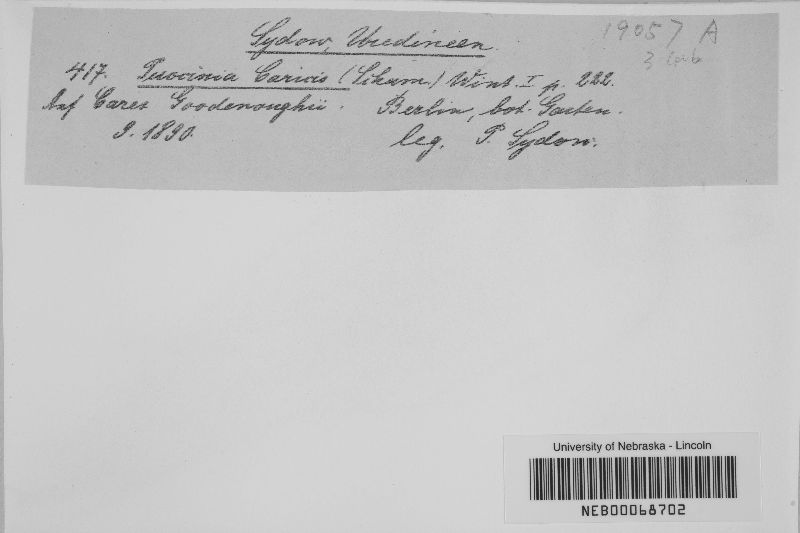 Sydow, Uredineen.
19057 A
3
417. Puccinia Caricis (Schum.) Wint. I p. 222.
Auf Carex Goodenoughii. Berlin, bot. Garten.
9. 1890. leg. P. Sydow.
University of Nebraska - Lincoln
NEB00068702